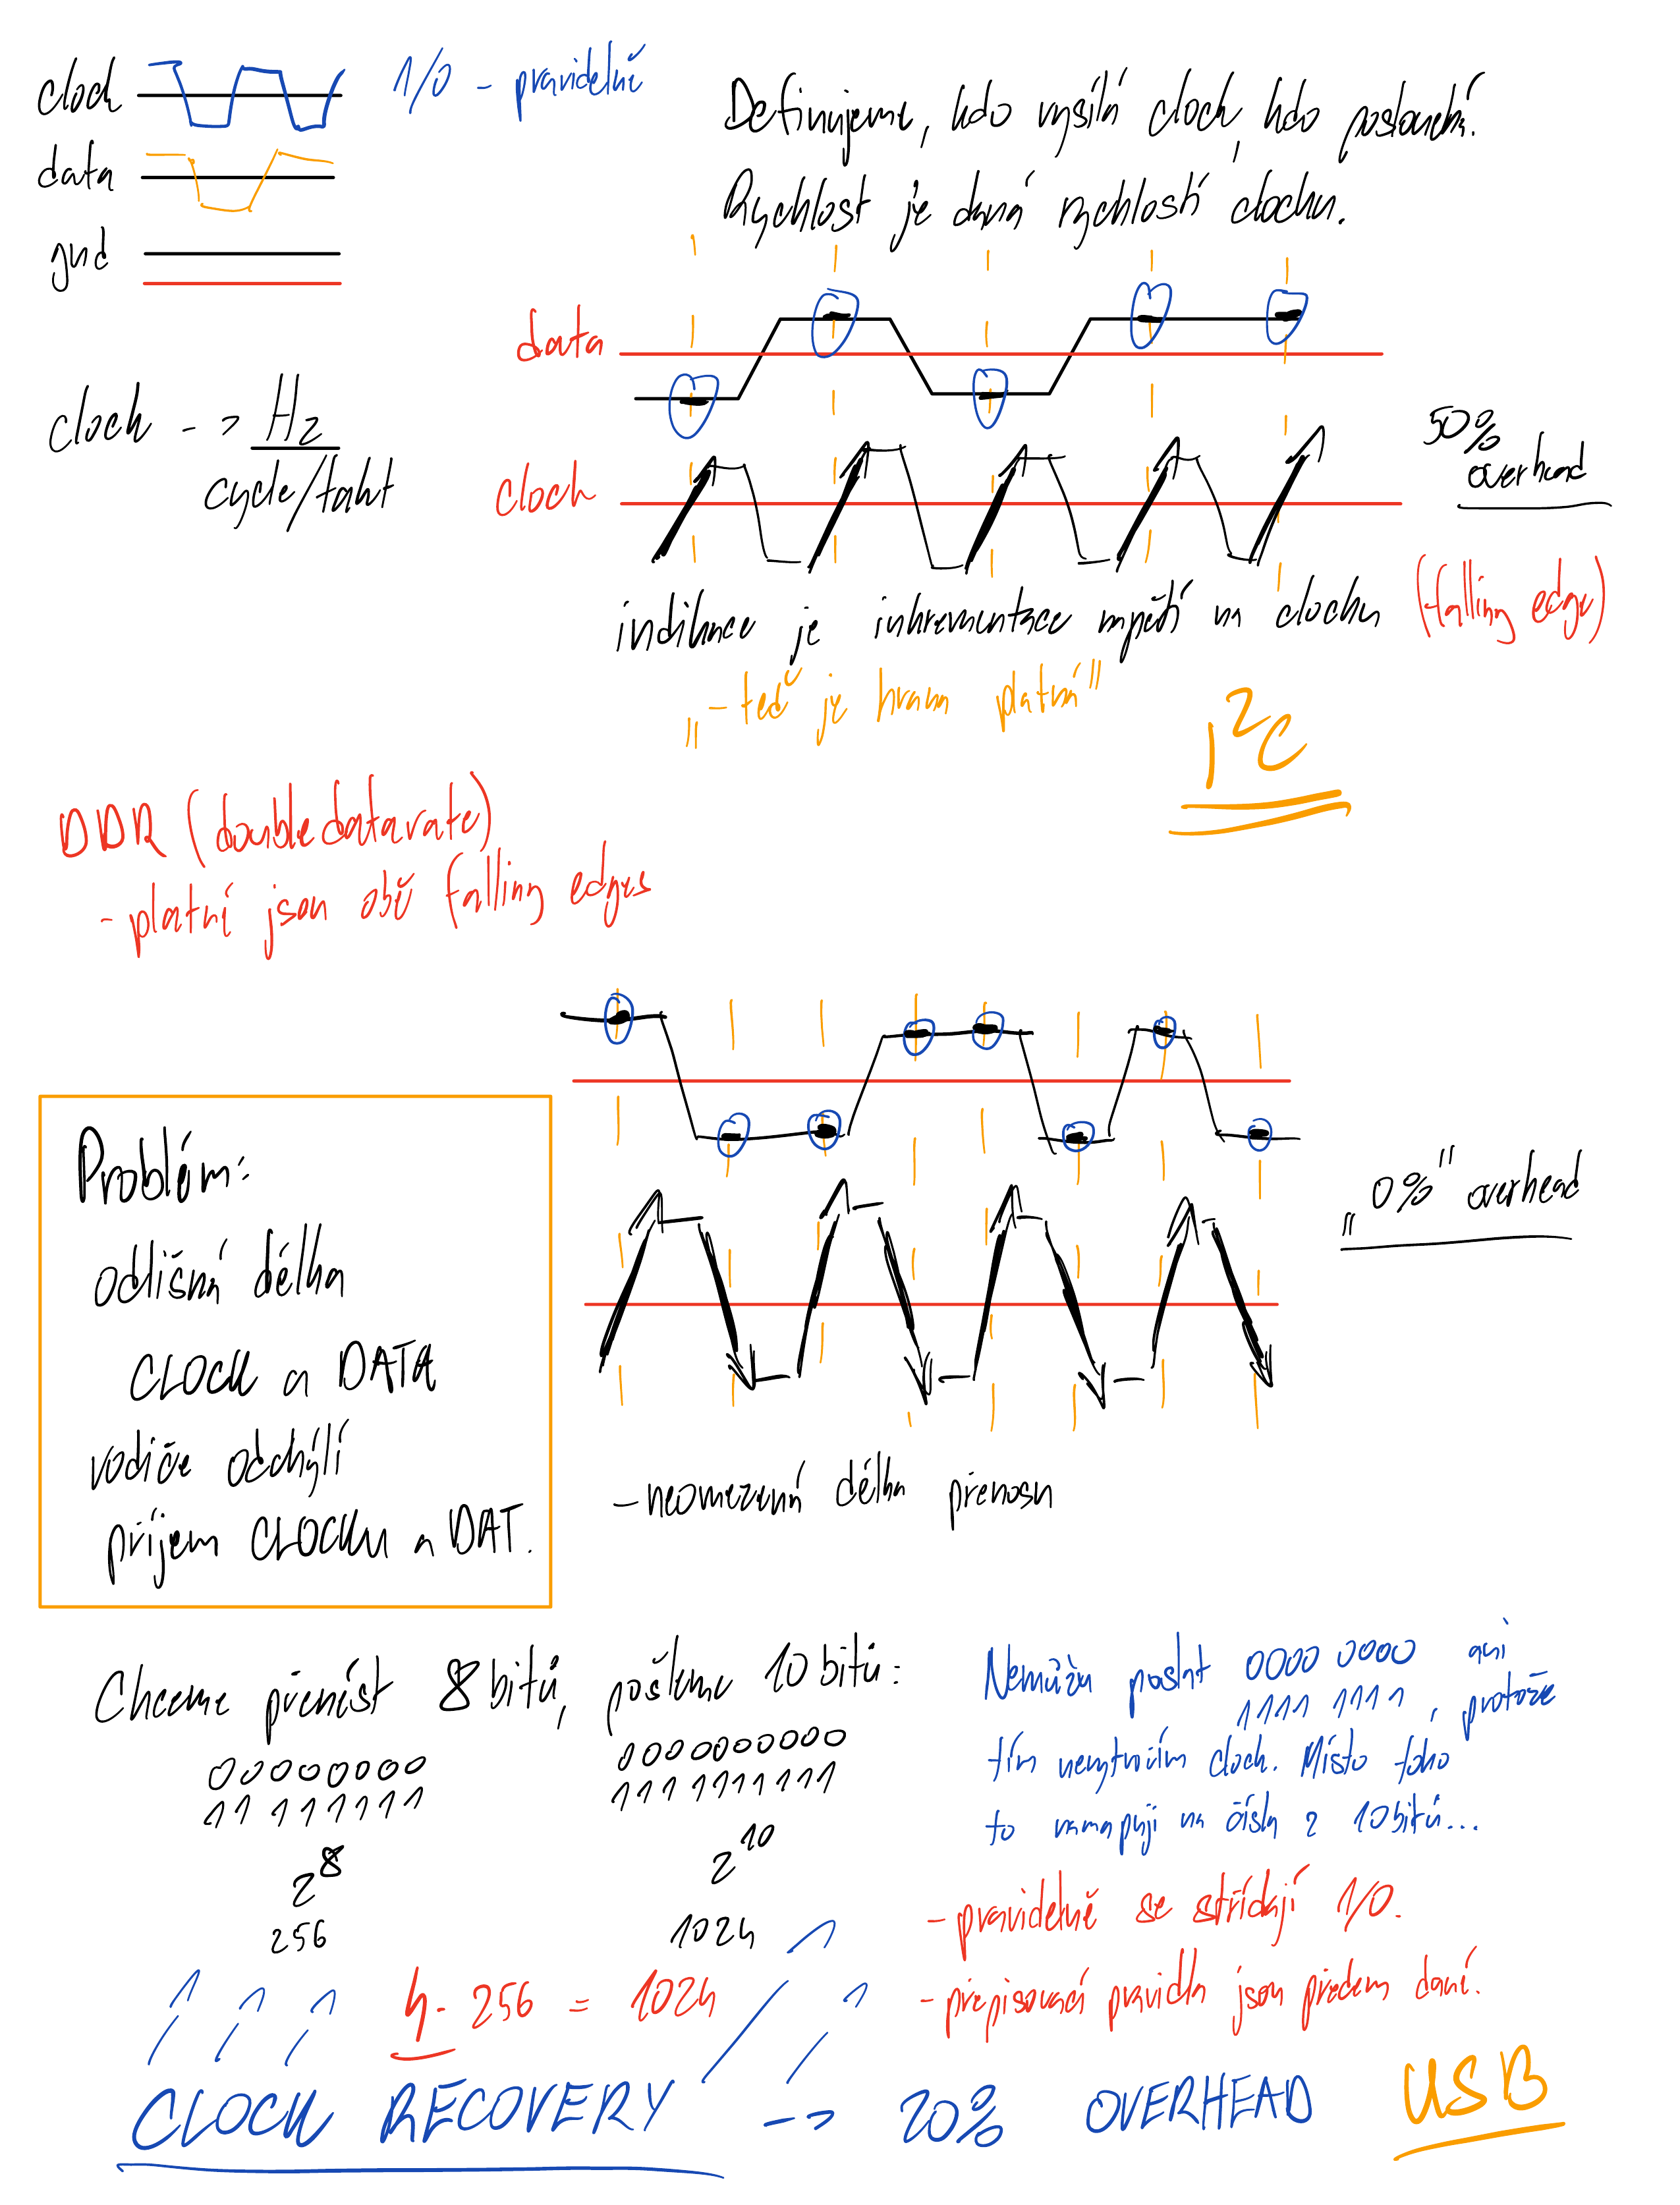 clock
1/0 - pravidelně
data
gnd
Definujeme, kdo vysílá clock, kdo poslouchá.
Rychlost je daná rychlostí clocku.
data
clock -> Hz
cycle/takt
clock
50%
overhead
indikace je inkrementace napětí na clocku (falling edge)
„- teď je hrana platná"
I²C
DDR (double data rate)
- platné jsou obě falling edges
Problém:
odlišná délka
CLOCK a DATA
vodiče odchýlí
příjem CLOCKu a DAT.
„0%" overhead
- neomezená délka přenosu
Chceme přenést 8 bitů, pošleme 10 bitů:
00000000
11111111
2⁸
256
0000000000
1111111111
2¹⁰
1024
Nemůžu poslat 0000 0000 ani
1111 1111, protože
tím nevytvořím clock. Místo toho
to namapuji na čísla z 10 bitů...
- pravidelně se střídají 1/0.
- přepisovací pravidla jsou předem dané.
4 · 256 = 1024
CLOCK RECOVERY -> 20% OVERHEAD
USB